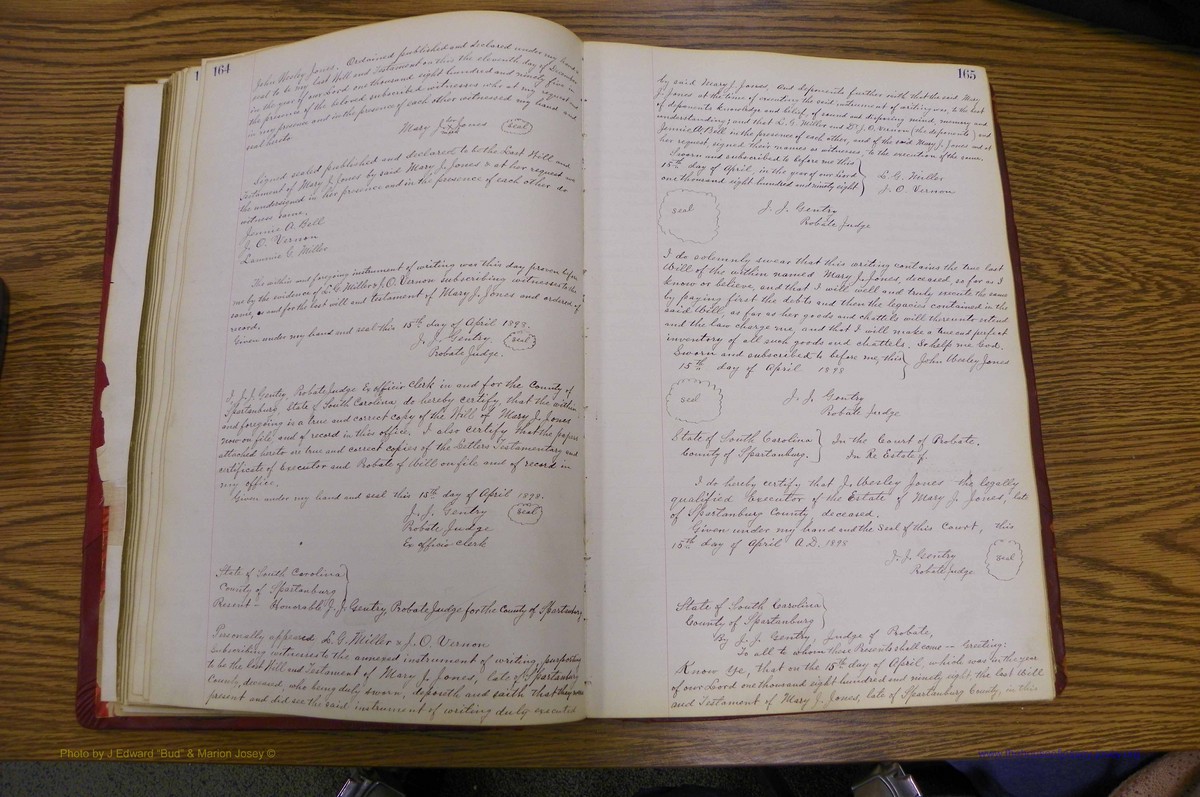 164
John Wesley Jones. Ordained published and declared under my hand &
seal to be my last Will and Testament on this the eleventh day of December
in the year of our Lord one thousand eight hundred and ninety five in
the presence of the beloved subscribed witnesses who at my request and
in my presence and in the presence of each other witnessed my hand and
seal hereto
her
Mary J. X Jones seal
mark
Signed sealed published and declared to be the Last Will and
Testament of Mary J. Jones by said Mary J. Jones & at her request we
the undersigned in her presence and in the presence of each other do
witness same.
Jennie A. Bell
J. O. Vernon
C. Miller
The within and foregoing instrument of writing was this day proven before
me by the evidence of L. G. Miller & J. O. Vernon subscribing witnesses to the
same, as and for the last will and testament of Mary J. Jones and ordered of
record.
Given under my hand and seal this 15th day of April 1898.
J. J. Gentry seal
Probate Judge.
I, J. J. Gentry, Probate Judge Ex officio Clerk in and for the County of
Spartanburg, State of South Carolina, do hereby certify that the within
and foregoing is a true and correct copy of the Will of Mary J. Jones
now on file and of record in this office. I also certify that the papers
attached hereto are true and correct copies of the Letters Testamentary and
certificate of Executor and Probate of Will on file and of record in
my office.
Given under my hand and seal this 15th day of April 1898.
J. J. Gentry seal
Probate Judge
Ex officio Clerk
State of South Carolina
County of Spartanburg
Present - Honorable J. J. Gentry, Probate Judge for the County of Spartanburg
Personally appeared L. G. Miller & J. O. Vernon
subscribing witnesses to the annexed instrument of writing purporting
to be the last Will and Testament of Mary J. Jones, late of Spartanburg
County, deceased, who being duly sworn, deposeth and saith that they were
present and did see the said instrument of writing duly executed
165
by said Mary J. Jones, And deponents further saith that the said Mary
J. Jones at the time of executing the said instrument of writing was, to the best
of deponents knowledge and belief, of sound and disposing mind, memory and
understanding; and that L. G. Miller and Dr. J. O. Vernon (the deponents) and
Jennie A. Bell in the presence of each other, and of the said Mary J. Jones and at
her request, signed their names as witnesses, to the execution of the same.
Sworn and subscribed to before me this
15th day of April, in the year of our Lord
one thousand eight hundred and ninety eight
L. G. Miller
J. O. Vernon
seal
J. J. Gentry
Probate Judge
I do solemnly swear that this writing contains the true last
Will of the within named Mary J. Jones, deceased, so far as I
know or believe, and that I will well and truly execute the same
by paying first the debts and then the legacies contained in the
said Will, as far as her goods and chattels will thereunto extend
and the law charge me, and that I will make a true and perfect
inventory of all such goods and chattels. So help me God.
Sworn and subscribed to before me, this
15th day of April 1898
John Wesley Jones
seal
J. J. Gentry
Probate Judge
State of South Carolina
County of Spartanburg.
In the Court of Probate.
In Re Estate of.
I do hereby certify that J. Wesley Jones the legally
qualified Executor of the Estate of Mary J. Jones, late
of Spartanburg County, deceased.
Given under my hand and the seal of this Court, this
15th day of April A.D. 1898
J. J. Gentry
Probate Judge
seal
State of South Carolina
County of Spartanburg
By J. J. Gentry, Judge of Probate,
To all to whom these Presents shall come - Greeting:
Know Ye, that on the 15th day of April which was in the year
of our Lord one thousand eight hundred and ninety eight the last Will
and Testament of Mary J. Jones, late of Spartanburg County, in this
Photo by J Edward "Bud" & Marion Josey ©